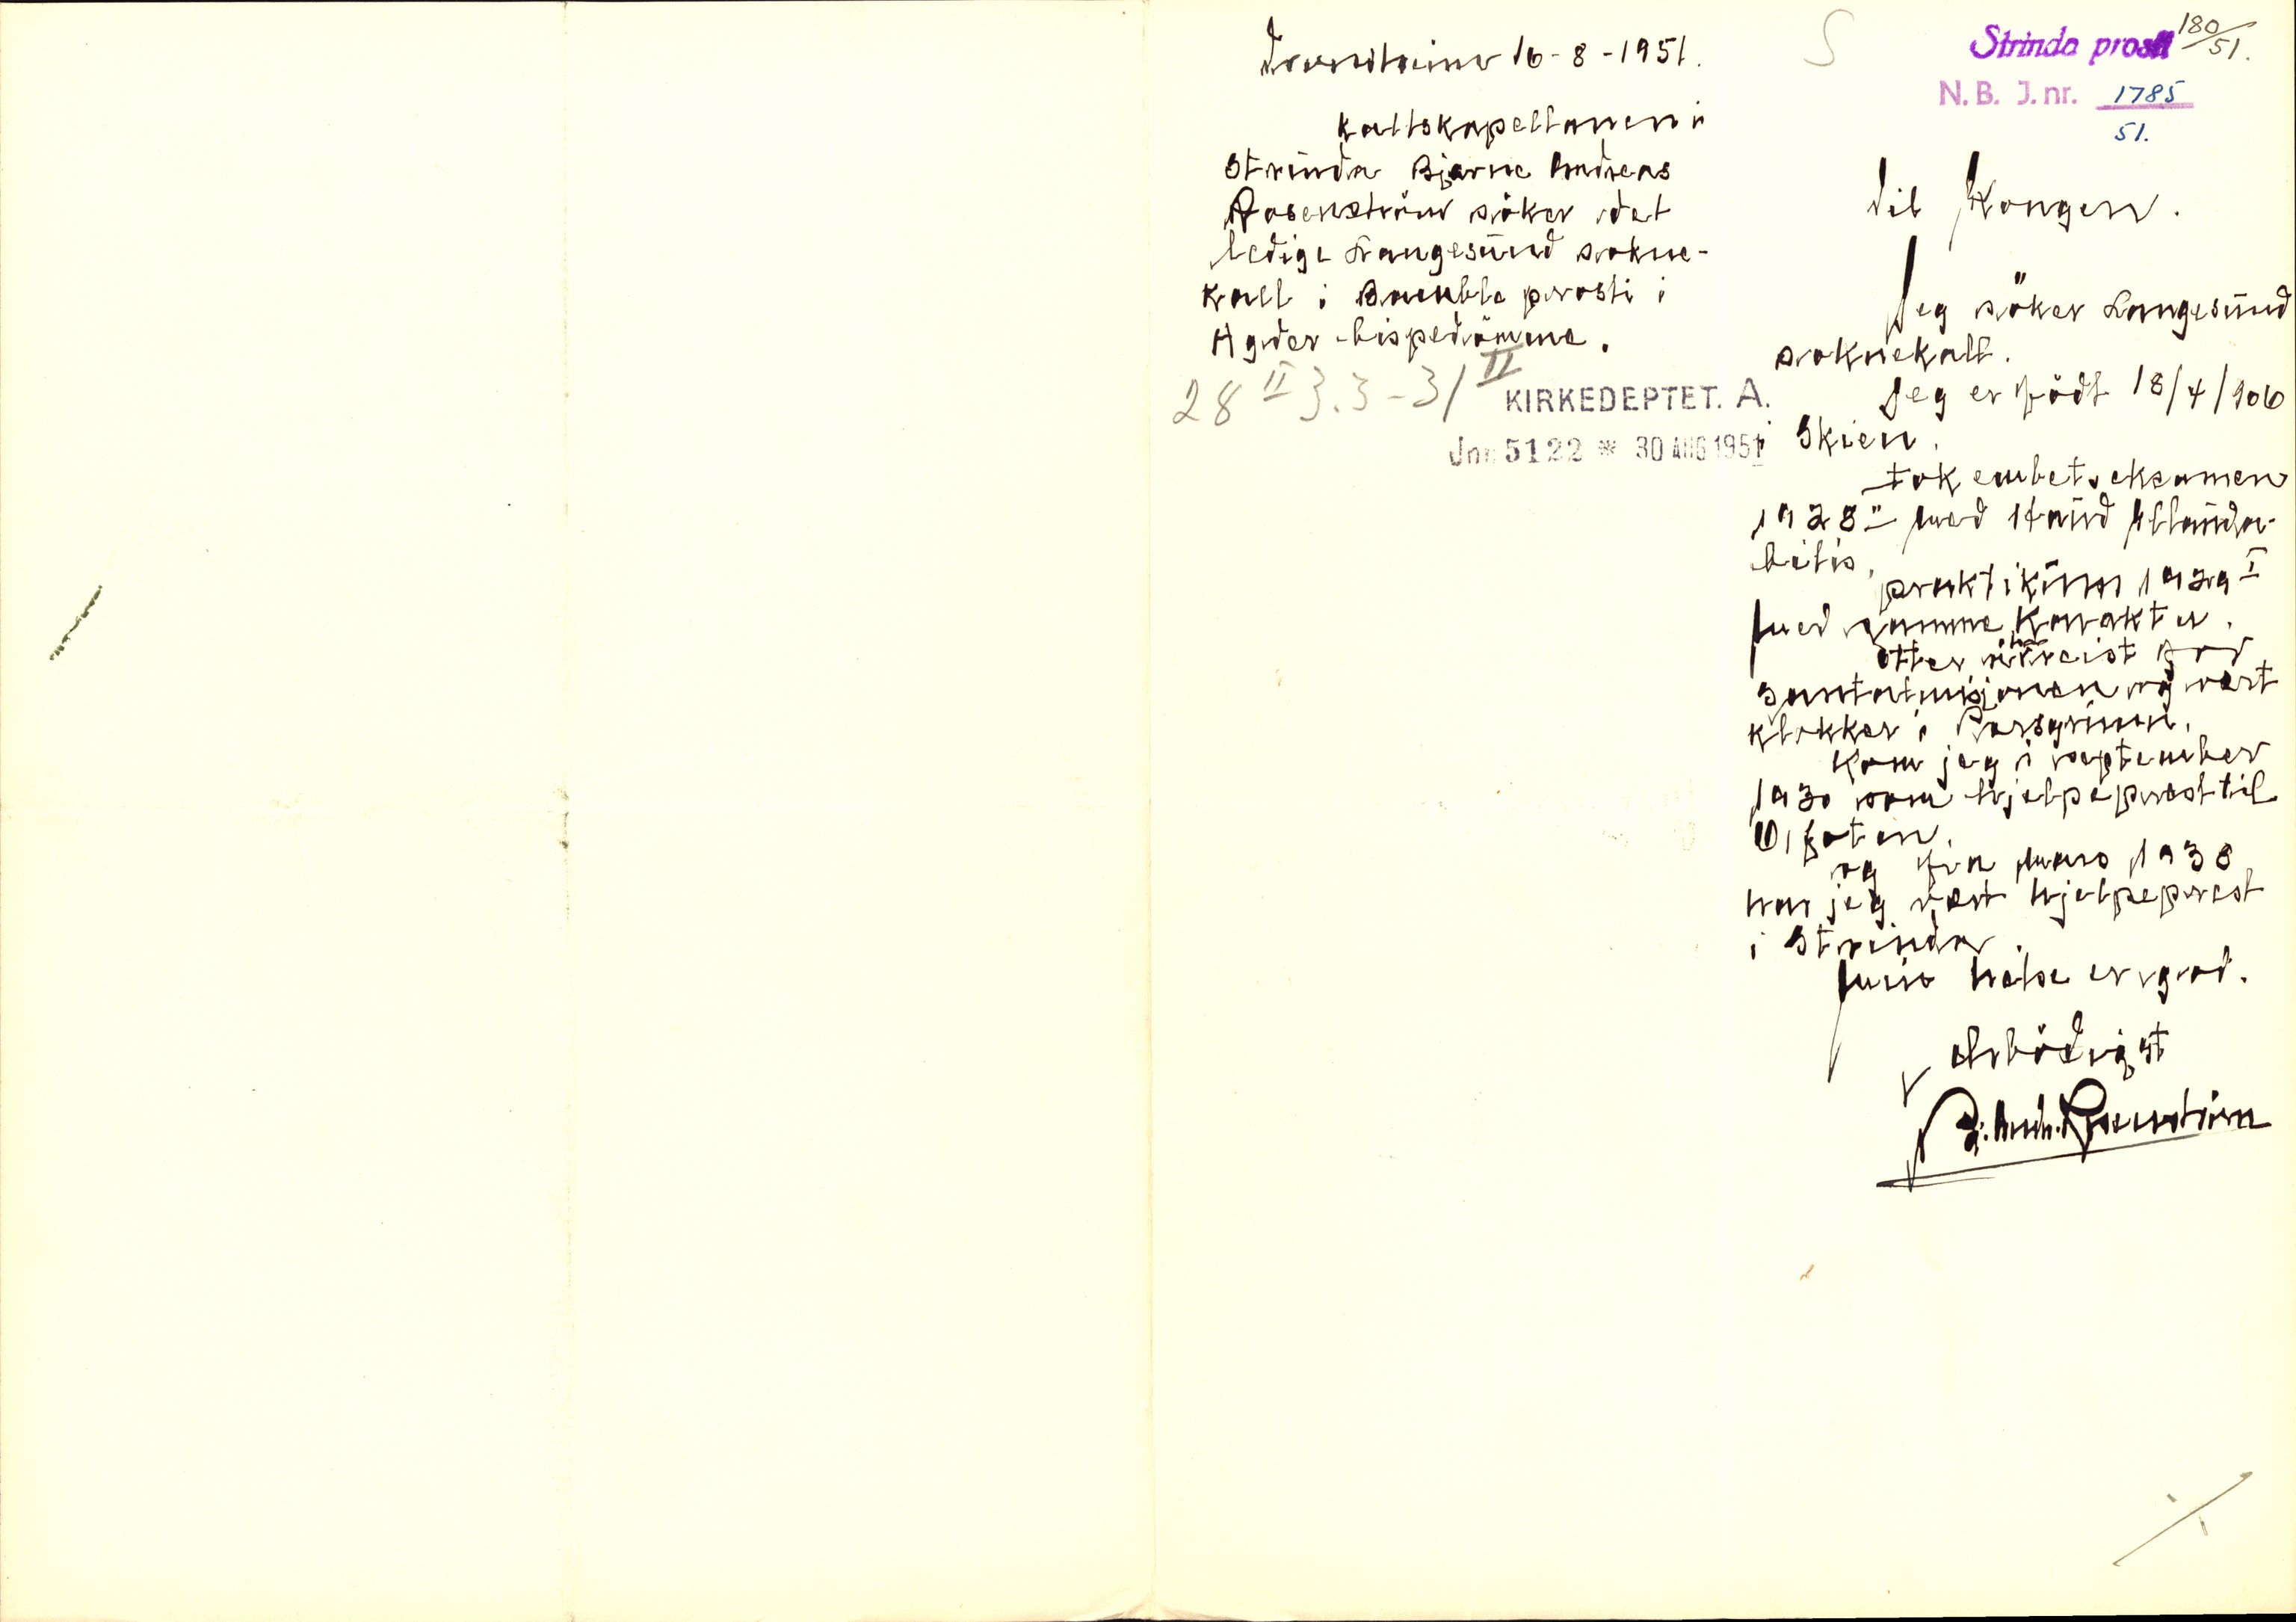 Trondheim 16-8-1951.
Kallskapellanen i
Strinda Bjarne Andreas
Rosenström söker det
ledige Langesund sokne-
kall i Bamble prosti i
Agder bispedömme.
28 II 3.3 - 31 II
KIRKEDEPTET. A.
Jnr 5122 * 30 AUG 1951
S
Strinda prosti 180/51.
N.B. J.nr. 1785
51.
Til Kongen.
Jeg söker Langesund
soknekall.
Jeg er födt 18/4/906
i Skien.
Tok embetseksamen
1928 II med Haud Illauda-
bilis,
praktikum 1929 I
med samme karakter.
Etter å ha reist for
Santalmisjonen og vært
klokker i Porsgrunn,
kom jeg i september
1930 som hjelpeprest til
Ofoten,
og fra mars 1938
har jeg vært hjelpeprest
i Strinda.
Min helse er god.
Ærbödigst
Bj. Andr. Rosenström